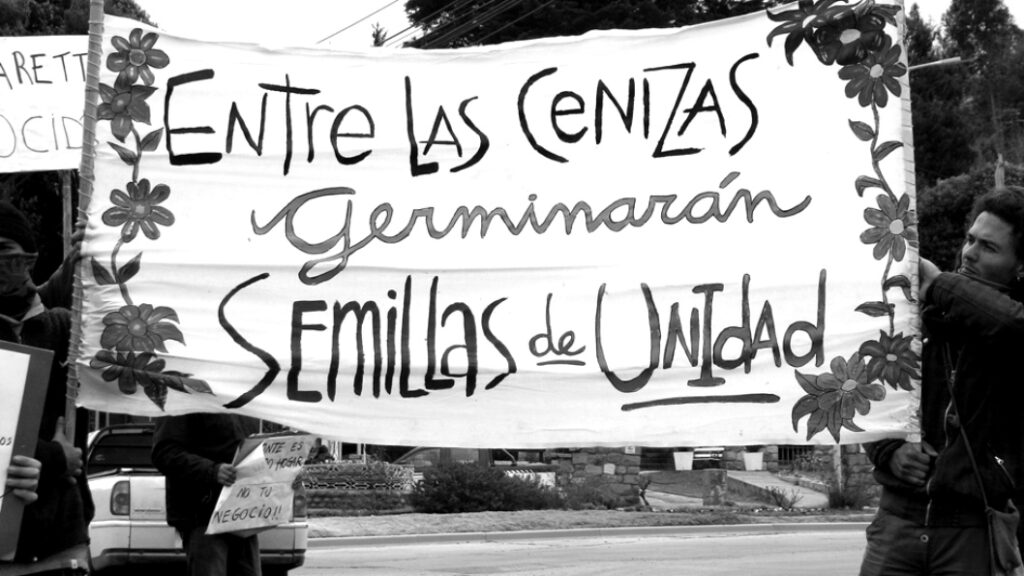 Entre las cenizas
germinarán
semillas de unidad
ARETT
OCID
NTE ES
HOGAR
NO TU
NEGOCIO!!